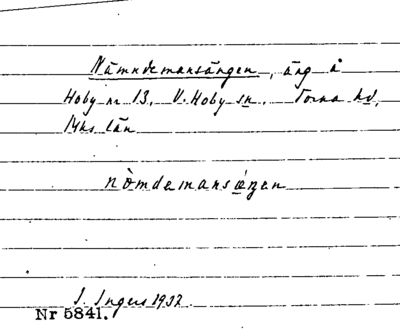 Nämndemansängen, äng å
Hoby nr 13, V. Hoby sn. Torna hd,
Mhs län
nòmdemansæŋen
I. Ingers 1932
Nr 5841.